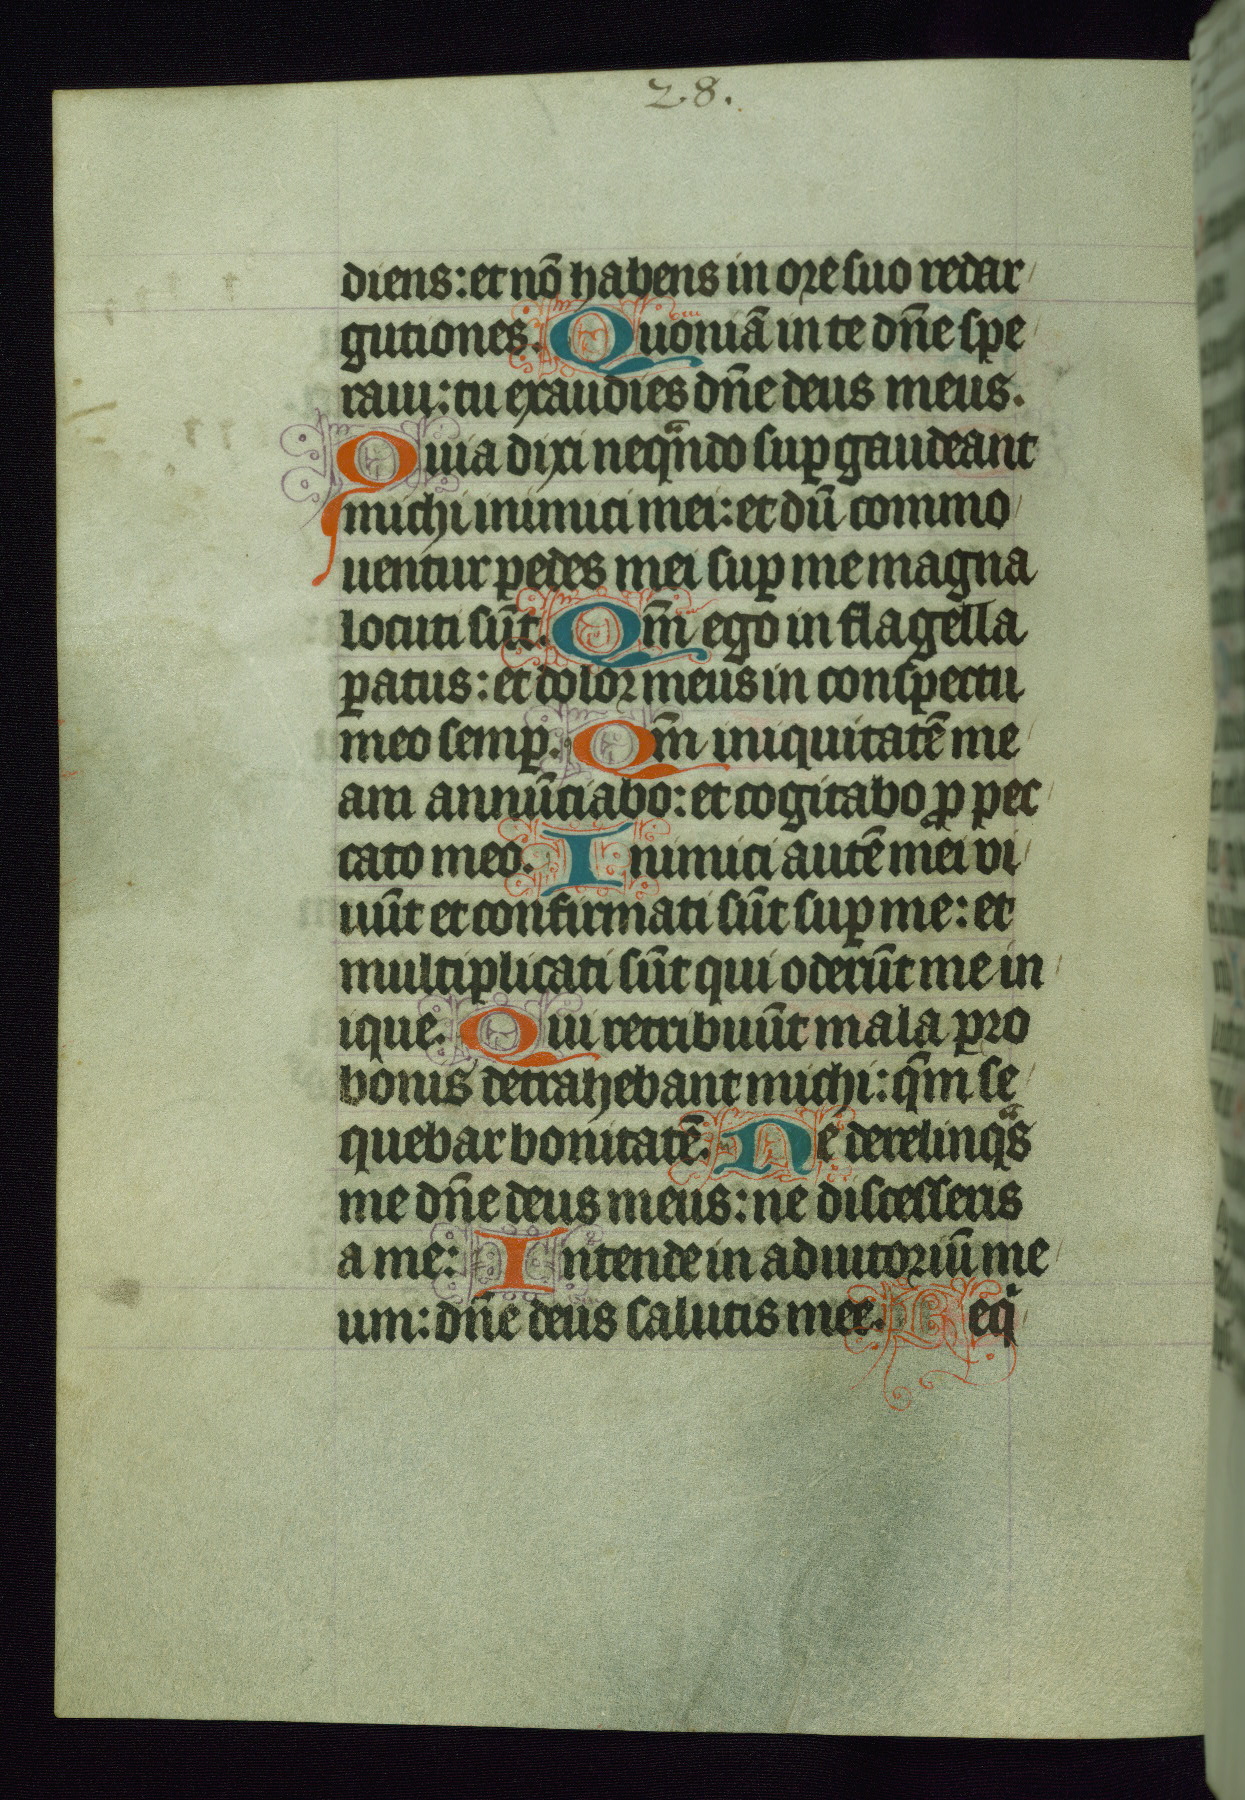 28.
diens: et nō habens in ore suo redar
gutiones. Quoniā in te dn̄e spe
raui: tu exaudies dn̄e deus meus.
Quia dixi neqᵃndo suꝑ gaudeant
michi inimici mei: et dū commo
uentur pedes mei suꝑ me magna
locuti sūt. Qm̄ ego in flagella
ꝑatus: et dolor meus in conspectu
meo semꝑ. Qm̄ iniquitatē me
am annūciabo: et cogitabo ꝓ pec
cato meo. Inimici autē mei vi
uūt et confirmati sūt suꝑ me: et
multiplicati sūt qui oderūt me in
ique. Qui retribuūt mala pro
bonis detrahebant michi: qm̄ se
quebar bonitatē. Ne derelinqᵃs
me dn̄e deus meus: ne discesseris
a me: Intende in adiutoriū me
um: dn̄e deus salutis mee. Reqⁱ